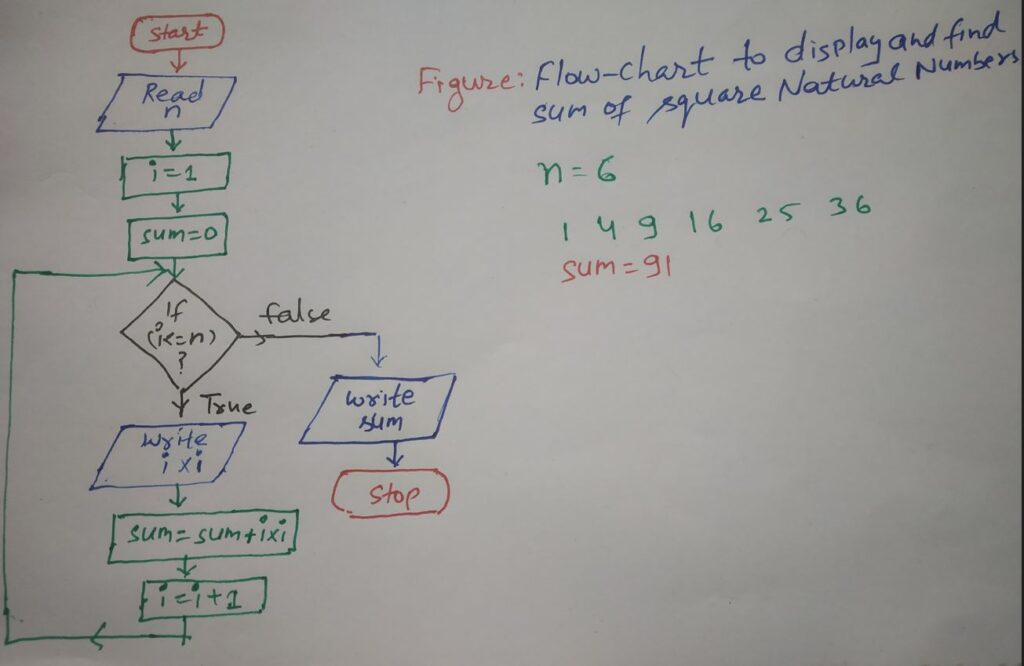 start
Read
n
i=1
sum=0
If
(i<=n)
?
false
True
write
i×i
sum=sum+i×i
i=i+1
write
sum
stop
Figure: Flow-chart to display and find
sum of square Natural Numbers
n=6
1 4 9 16 25 36
sum=91